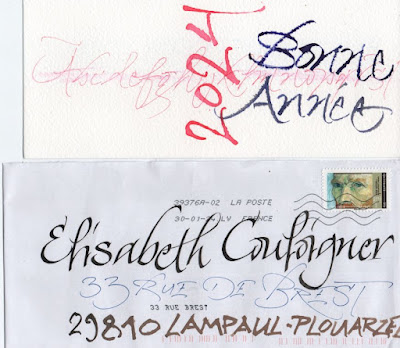 Abcdefgh
2024
Bonne
Année
39376A-02 LA POSTE
30-01-24 LY FRANCE
Elisabeth Couloigner
33 RUE DE BREST
33 RUE BREST
29810 LAMPAUL-PLOUARZEL